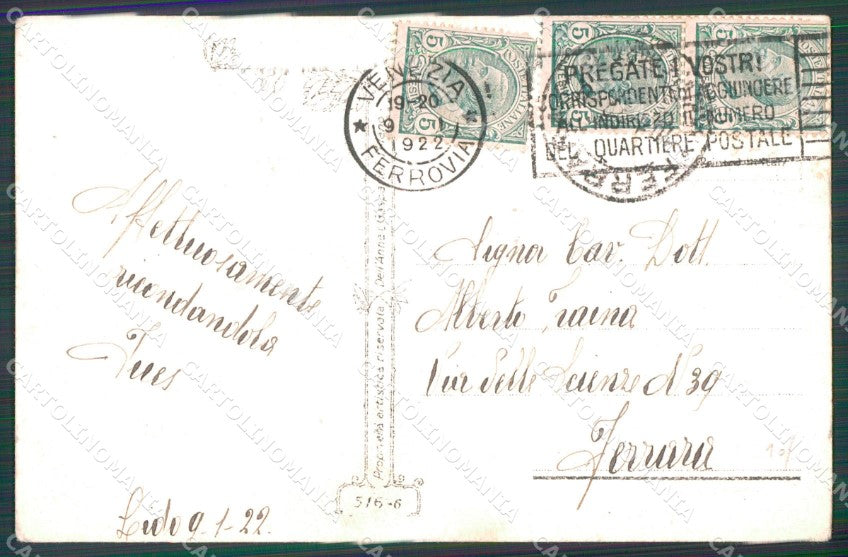 VENEZIA
19-20
9 1
1922
FERROVIA
PREGATE I VOSTRI
CORRISPONDENTI DI AGGIUNGERE
ALL'INDIRIZZO IL NUMERO
DEL QUARTIERE POSTALE
5
5
5
5
5
5
Affettuosamente
ricordandola
Ines
Lido 9-1-22
Proprietà artistica riservata
516-6
Signa Cav. Dott.
Alberto Traina
Via Delle Scienze N 39
Ferrara
CARTOLINOMANIA